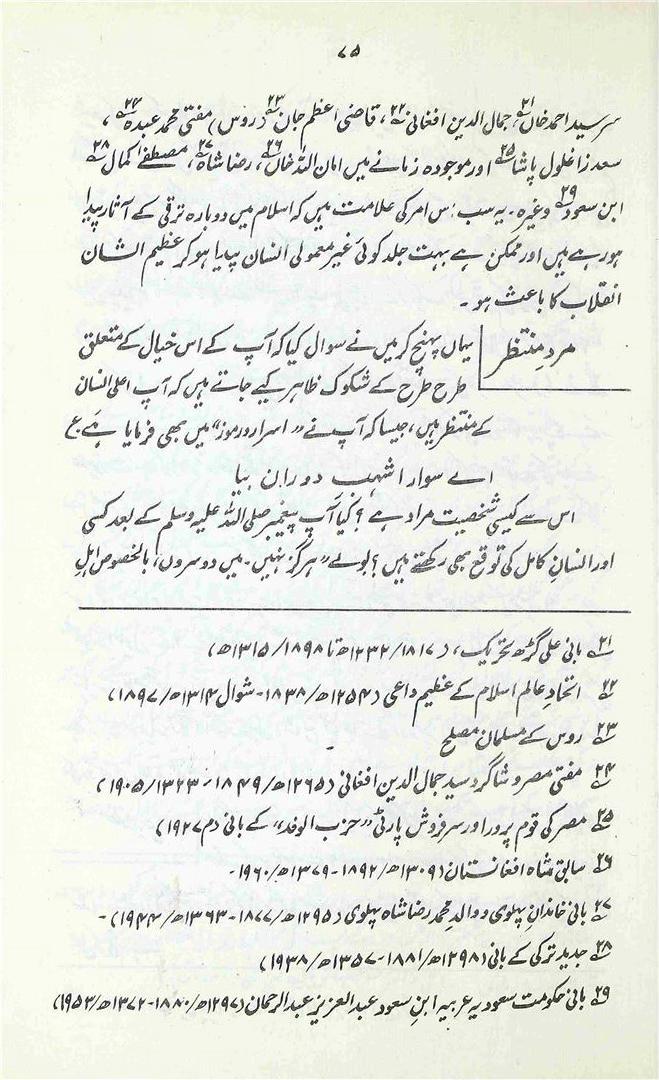 ۷۵
سرسید احمد خاں۲۱، جمال الدین افغانی۲۲، قاضی اعظم جان۲۳ (روس) مفتی محمد عبدہ۲۴،
سعد زاغلول پاشا۲۵ اور موجودہ زمانے میں امان اللہ خاں۲۶، رضا شاہ۲۷، مصطفےٰ کمال۲۸
ابن سعود۲۹ وغیرہ۔ یہ سب اس امر کی علامت ہیں کہ اسلام میں دوبارہ ترقی کے آثار پیدا
ہو رہے ہیں اور ممکن ہے بہت جلد کوئی غیر معمولی انسان پیدا ہو کر عظیم الشان
انقلاب کا باعث ہو۔
مردِ منتظر
یہاں پہنچ کر میں نے سوال کیا کہ آپ کے اس خیال کے متعلق
طرح طرح کے شکوک ظاہر کیے جاتے ہیں کہ آپ اعلیٰ انسان
کے منتظر ہیں، جیسا کہ آپ نے "اسرار و رموز" میں بھی فرمایا ہے ع
اے سوار اشہبِ دوراں بیا
اس سے کیسی شخصیت مراد ہے؟ کیا آپ پیغمبر صلی اللہ علیہ وسلم کے بعد کسی
اور انسانِ کامل کی توقع بھی رکھتے ہیں؟ بولے "ہرگز نہیں۔ میں دوسروں، بالخصوص اہلِ
۲۱ بانی علی گڑھ تحریک، (۱۸۱۷/۱۲۳۲ھ تا ۱۸۹۸/۱۳۱۵ھ)
۲۲ اتحادِ عالم اسلام کے عظیم داعی (۱۲۵۴ھ/۱۸۳۸۔ شوال ۱۳۱۴ھ/۱۸۹۷)
۲۳ روس کے مسلمان مصلح
۲۴ مفتی مصر و شاگرد سید جمال الدین افغانی (۱۲۶۵ھ/۱۸۴۹۔ ۱۳۲۳/۱۹۰۵)
۲۵ مصر کی قوم پرور اور سرفروش پارٹی "حزب الوفد" کے بانی (م ۱۹۲۷)
۲۶ سابق شاہ افغانستان (۱۳۰۹ھ/۱۸۹۲۔ ۱۳۷۹ھ/۱۹۶۰۔
۲۷ بانی خاندانِ پہلوی و والدِ محمد رضا شاہ پہلوی (۱۲۹۵ھ/۱۸۷۷۔ ۱۳۶۳ھ/۱۹۴۴)۔
۲۸ جدید ترکی کے بانی (۱۲۹۸ھ/۱۸۸۱۔ ۱۳۵۷ھ/۱۹۳۸)
۲۹ بانی حکومت سعودیہ عربیہ ابن سعود عبد العزیز عبد الرحمان (۱۲۹۷ھ/۱۸۸۰۔ ۱۳۷۲ھ/۱۹۵۳)